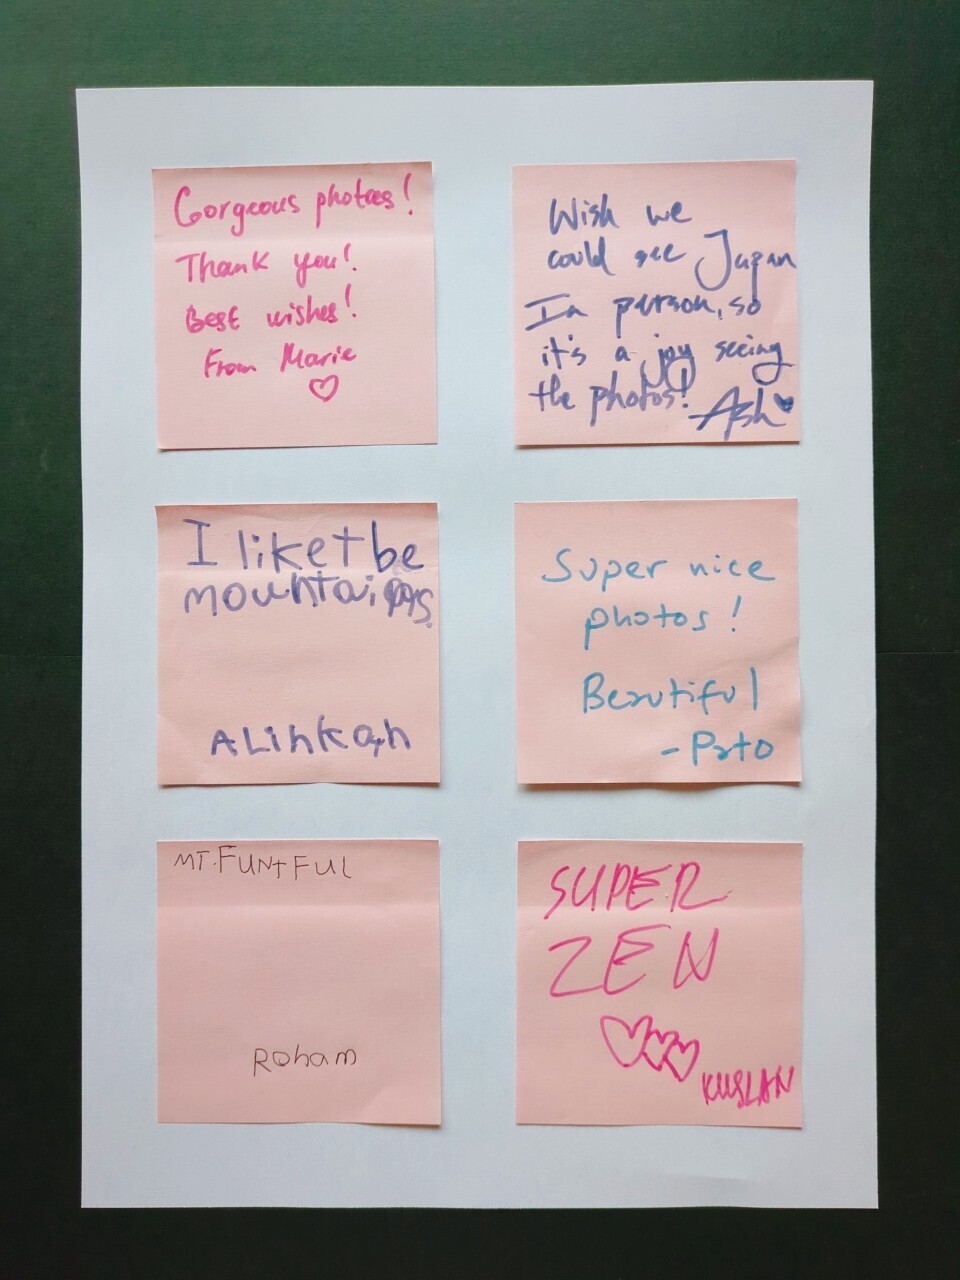 Gorgeous photoes!
Thank you!
Best wishes!
From Marie
Wish we
could see Japan
In person, so
it's a joy seeing
the photos! Ash
I like the
mountains.
ALinkah
Super nice
photos!
Beautiful
- Pato
MT. FUNtFUL
Roham
SUPER
ZEN